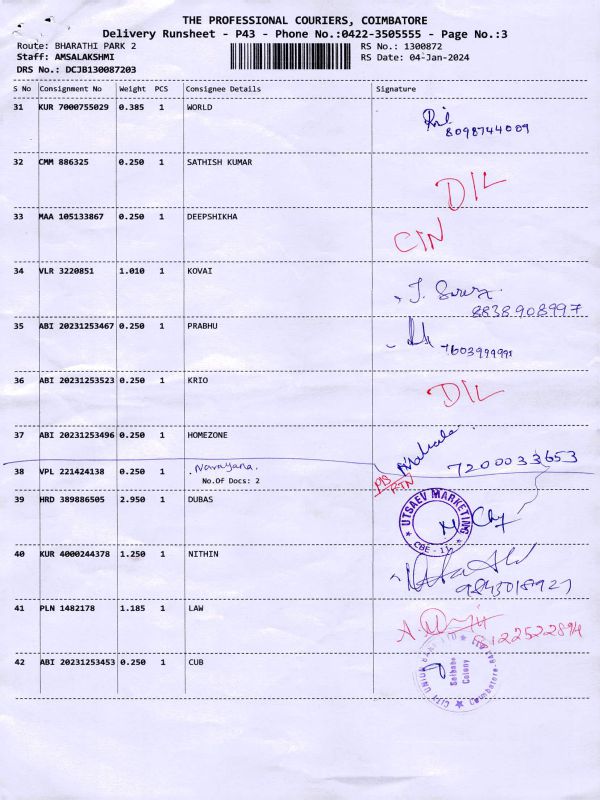 THE PROFESSIONAL COURIERS, COIMBATORE
Delivery Runsheet - P43 - Phone No.:0422-3505555 - Page No.:3
Route: BHARATHI PARK 2 RS No.: 1300872
Staff: AMSALAKSHMI RS Date: 04-Jan-2024
DRS No.: DCJB130087203
S No Consignment No Weight PCS Consignee Details Signature
31 KUR 7000755029 0.385 1 WORLD
8098744009
32 CMM 886325 0.250 1 SATHISH KUMAR
DIL
33 MAA 105133867 0.250 1 DEEPSHIKHA
CIN
34 VLR 3220851 1.010 1 KOVAI
8838908997
35 ABI 20231253467 0.250 1 PRABHU
36 ABI 20231253523 0.250 1 KRIO
DIL
37 ABI 20231253496 0.250 1 HOMEZONE
7200033653
38 VPL 221424138 0.250 1 Narayana.
No.Of Docs: 2
RTN
39 HRD 389886505 2.950 1 DUBAS
UTSAEV MARKETING
CBE - 11
40 KUR 4000244378 1.250 1 NITHIN
41 PLN 1482178 1.185 1 LAW
42 ABI 20231253453 0.250 1 CUB
CITY UNION
Saibaba
Colony
Coimbatore